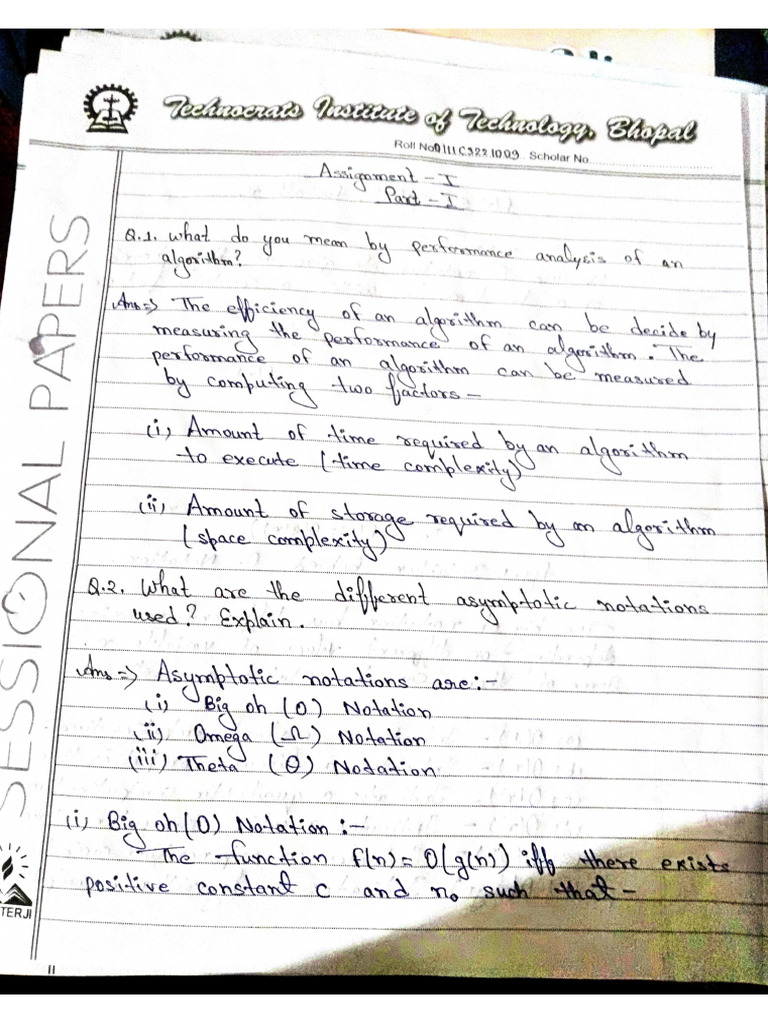 Technocrats Institute of Technology, Bhopal
Roll No 0111CS221009 Scholar No.
Assignment - I
Part - I
Q.1. What do you mean by performance analysis of an
algorithm?
Ans => The efficiency of an algorithm can be decide by
measuring the performance of an algorithm. The
performance of an algorithm can be measured
by computing two factors -
(i) Amount of time required by an algorithm
to execute (time complexity)
(ii) Amount of storage required by an algorithm
(space complexity)
Q.2. What are the different asymptotic notations
used? Explain.
Ans => Asymptotic notations are:-
(i) Big oh (O) Notation
(ii) Omega (Ω) Notation
(iii) Theta (θ) Notation
(i) Big oh (O) Notation :-
The function f(n) = O(g(n)) iff there exists
positive constant c and n₀ such that -
SESSIONAL PAPERS
TERJI